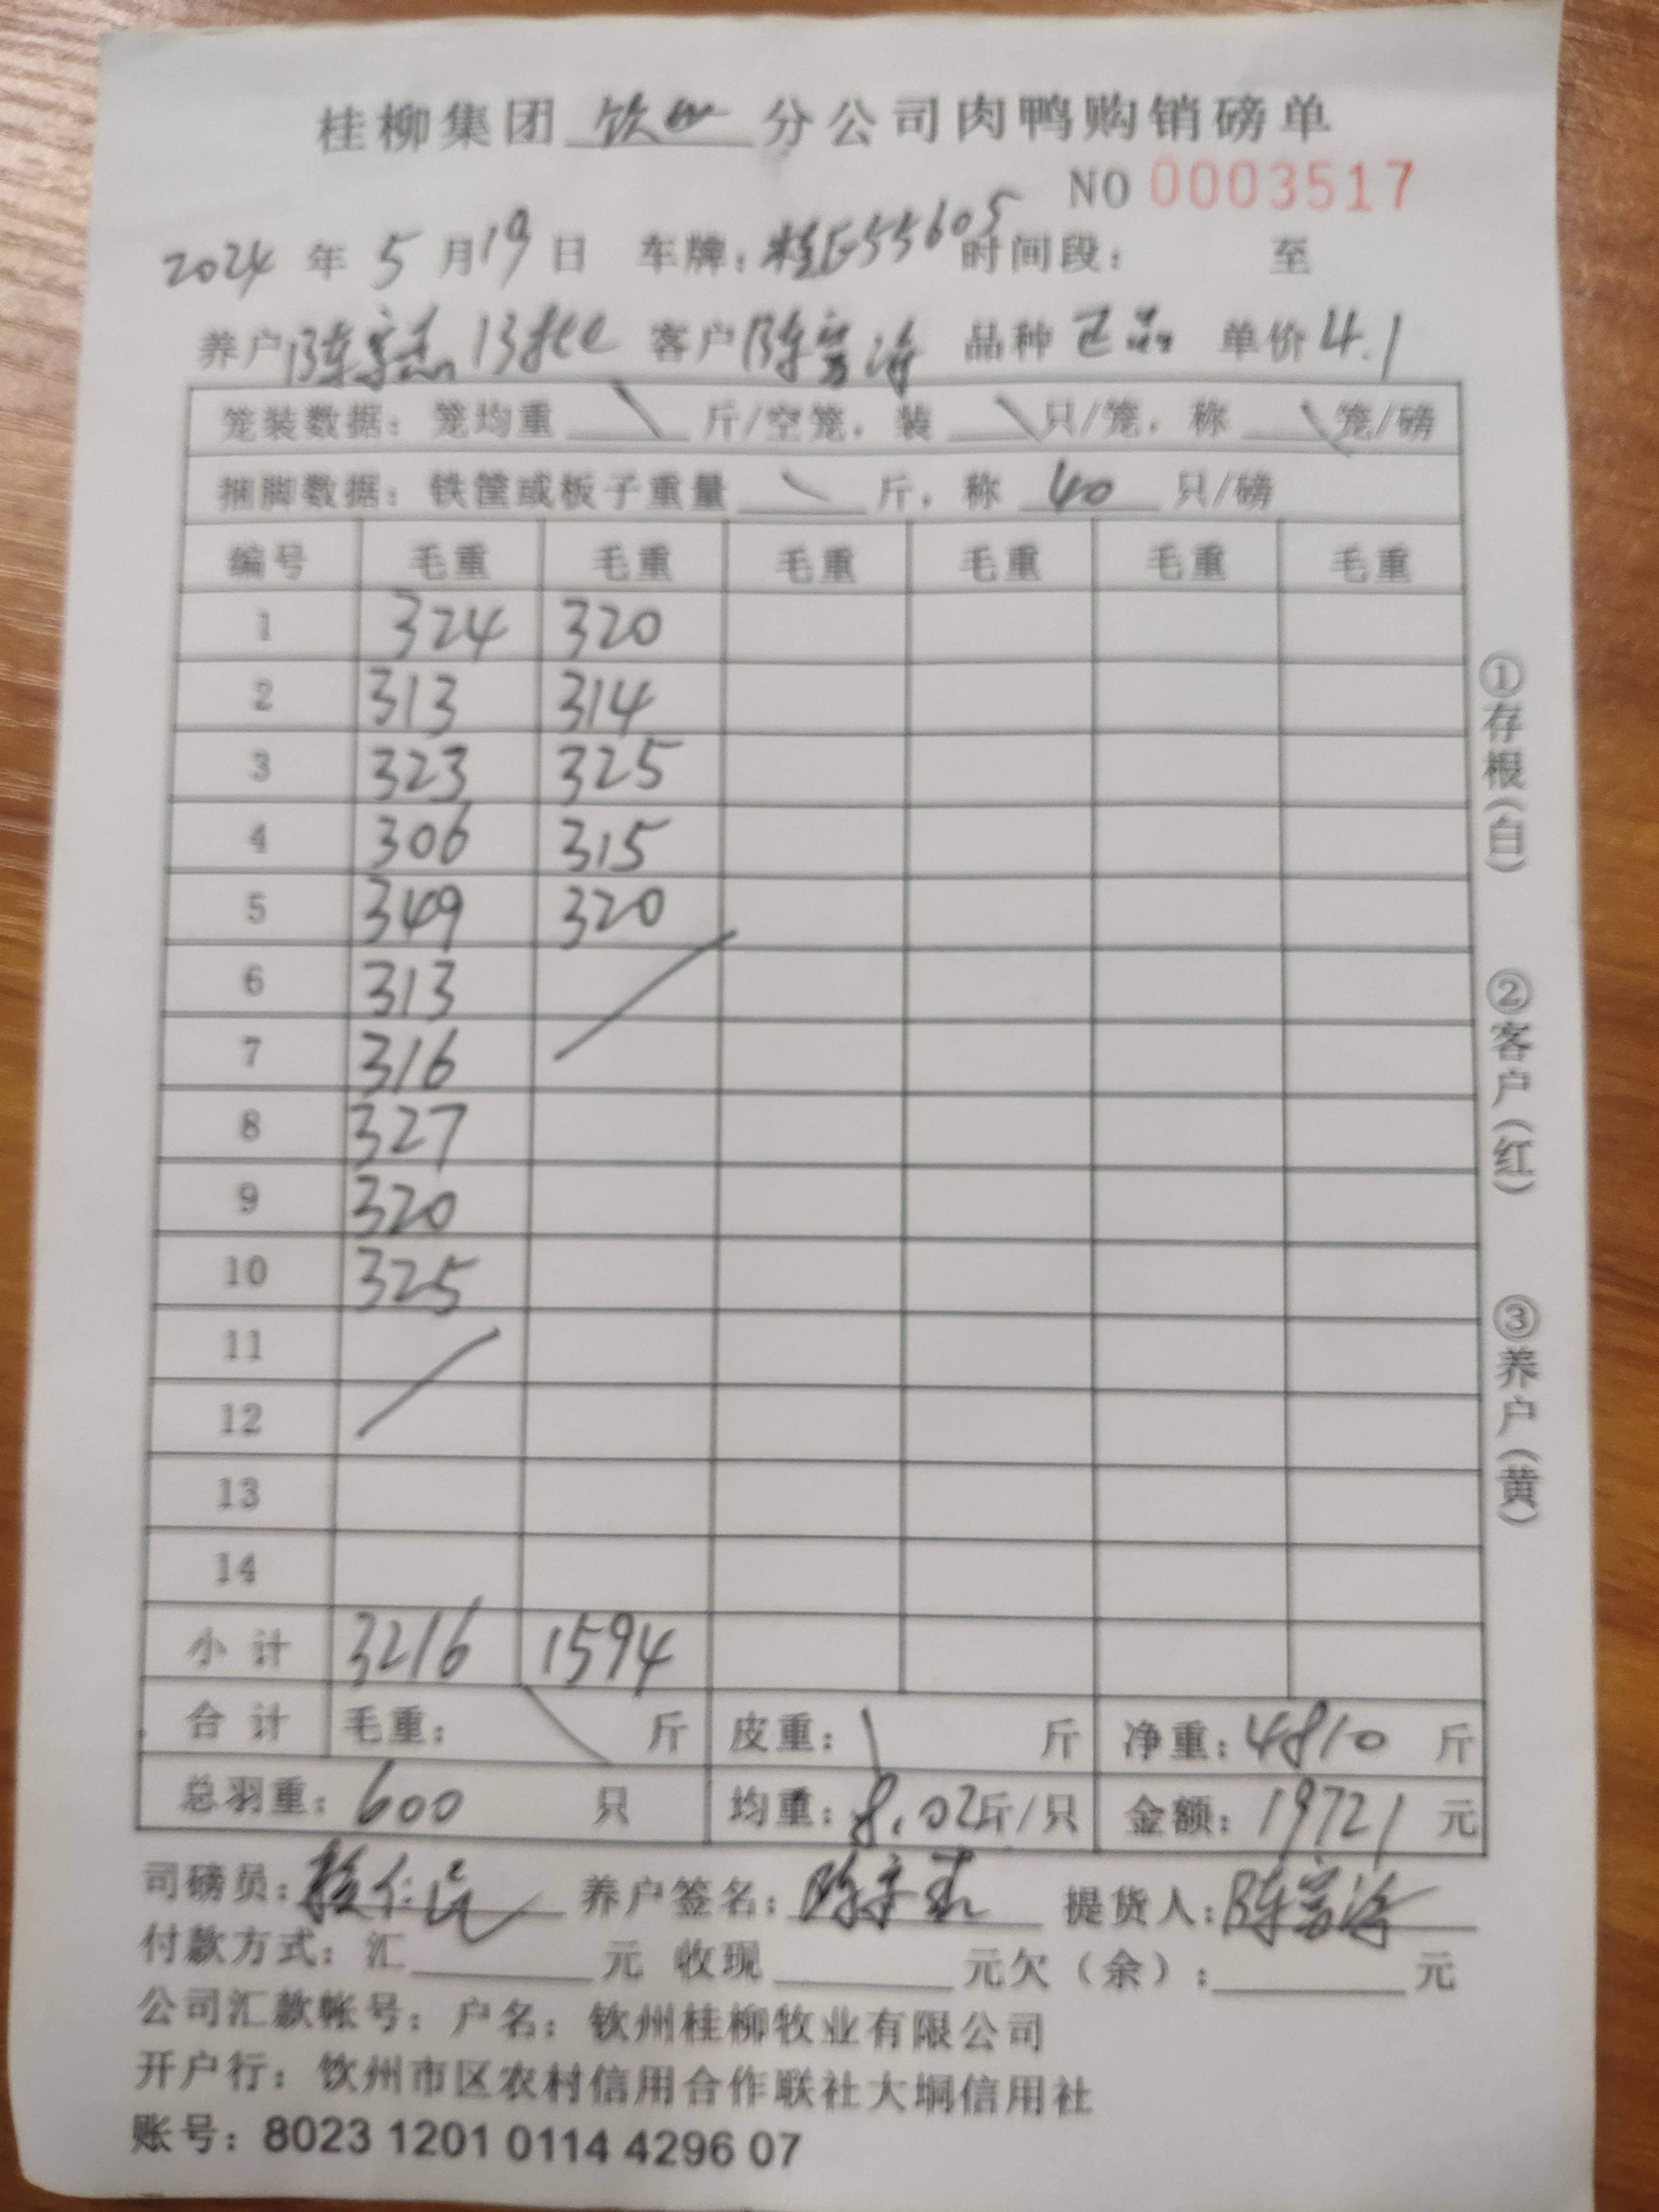 桂柳集团 钦州 分公司肉鸭购销磅单
NO 0003517
2024 年 5 月 19 日 车牌：桂E55605 时间段： 至
养户 陈 13批 客户 陈富涛 品种 正品 单价 4.1
笼装数据：笼均重 \ 斤/空笼，装 \ 只/笼，称 \ 笼/磅
捆脚数据：铁筐或板子重量 \ 斤，称 40 只/磅
编号 毛重 毛重 毛重 毛重 毛重 毛重
1 324 320
2 313 314
3 323 325
4 306 315
5 349 320
6 313
7 316
8 327
9 320
10 325
11
12
13
14
小计 3216 1594
合计 毛重： \ 斤 皮重： \ 斤 净重：4810 斤
总羽重：600 只 均重：8.02斤/只 金额：19721 元
司磅员： 养户签名：陈 提货人：陈富涛
付款方式：汇 元 收现 元欠（余）： 元
公司汇款帐号：户名：钦州桂柳牧业有限公司
开户行：钦州市区农村信用合作联社大垌信用社
账号：8023 1201 0114 4296 07
①存根（白） ②客户（红） ③养户（黄）